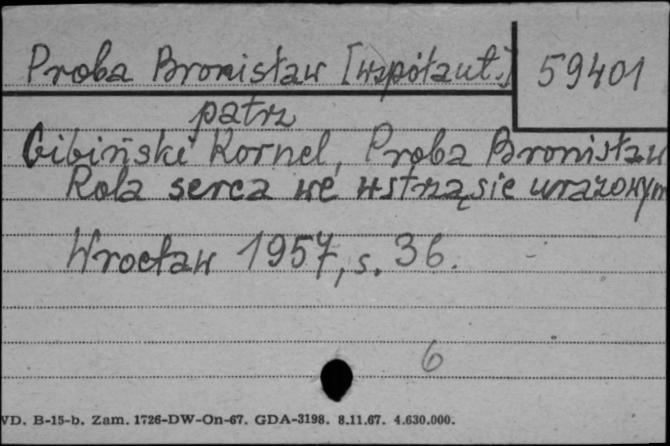 Proba Bronisław [współaut.]
59401
patrz
Gibiński Kornel, Proba Bronisław
Rola serca we wstrząsie urazowym
Wrocław 1957, s. 36.
6
VD. B-15-b. Zam. 1726-DW-On-67. GDA-3198. 8.11.67. 4.630.000.